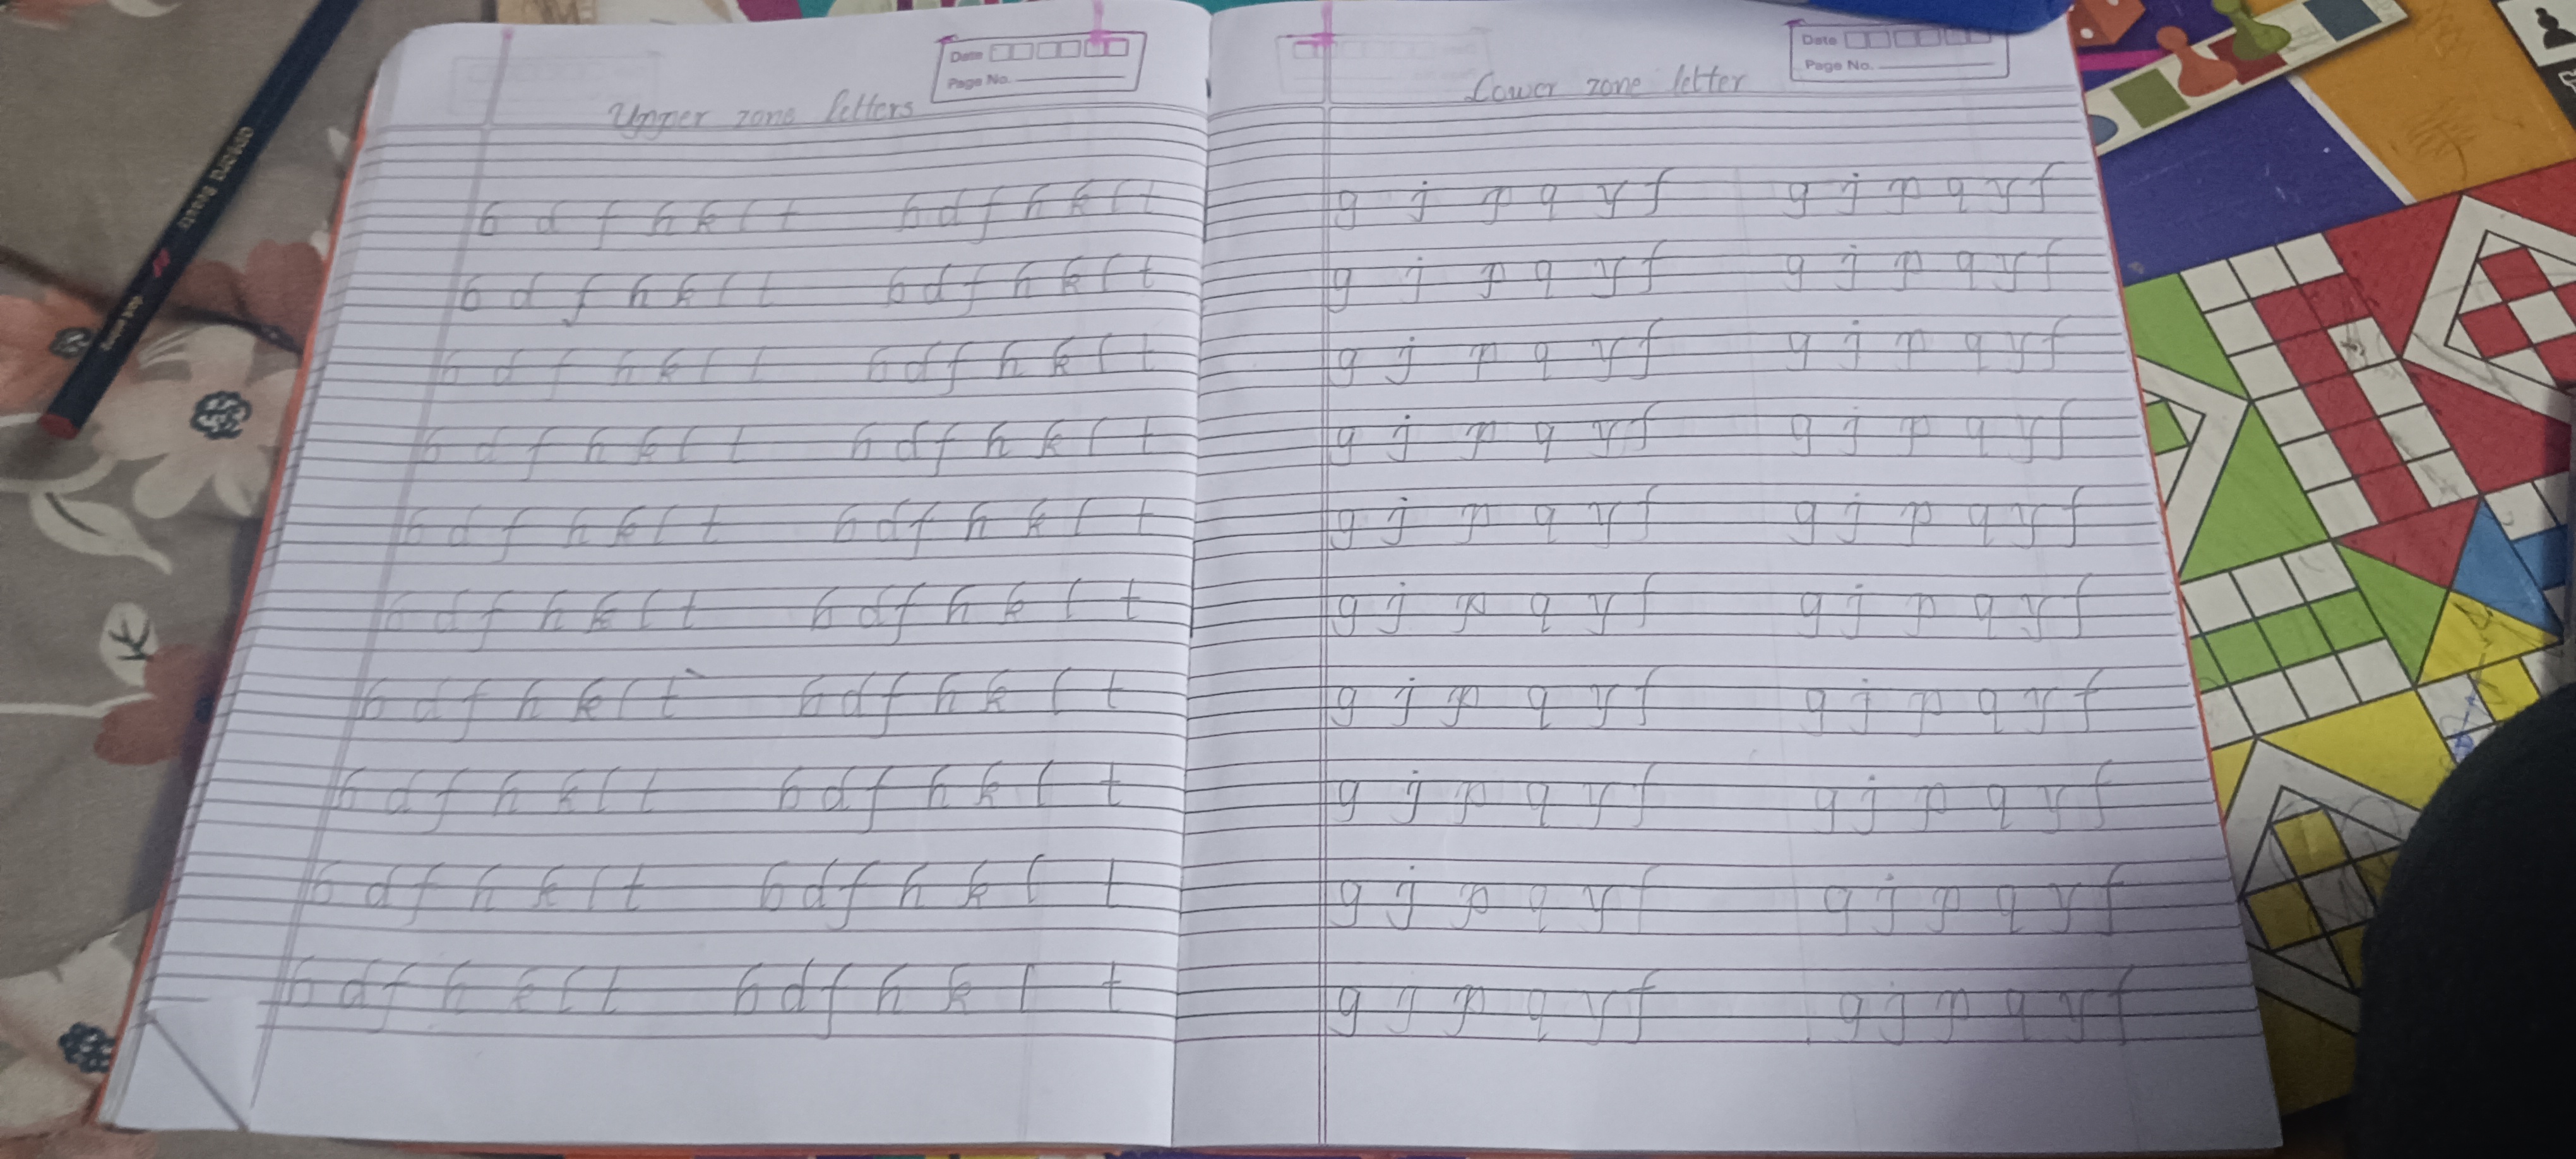 Date
Page No.
Upper zone letters
b d f h k l t b d f h k l t
b d f h k l t b d f h k l t
b d f h k l t b d f h k l t
b d f h k l t b d f h k l t
b d f h k l t b d f h k l t
b d f h k l t b d f h k l t
b d f h k l t b d f h k l t
b d f h k l t b d f h k l t
b d f h k l t b d f h k l t
b d f h k l t b d f h k l t
Date
Page No.
Lower zone letter
g j p q y f g j p q y f
g j p q y f g j p q y f
g j p q y f g j p q y f
g j p q y f g j p q y f
g j p q y f g j p q y f
g j p q y f g j p q y f
g j p q y f g j p q y f
g j p q y f g j p q y f
g j p q y f g j p q y f
g j p q y f g j p q y f